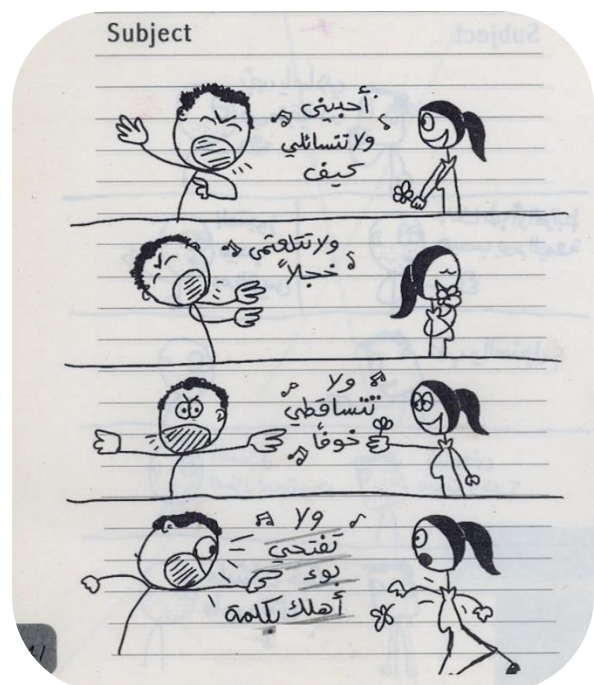 Subject
أحبيني
ولا تتسائلي
كيف
ولا تتلعثمي
خجلاً
ولا
تتساقطي
خوفًا
ولا
تفتحي
بوء
أهلك بكلمة